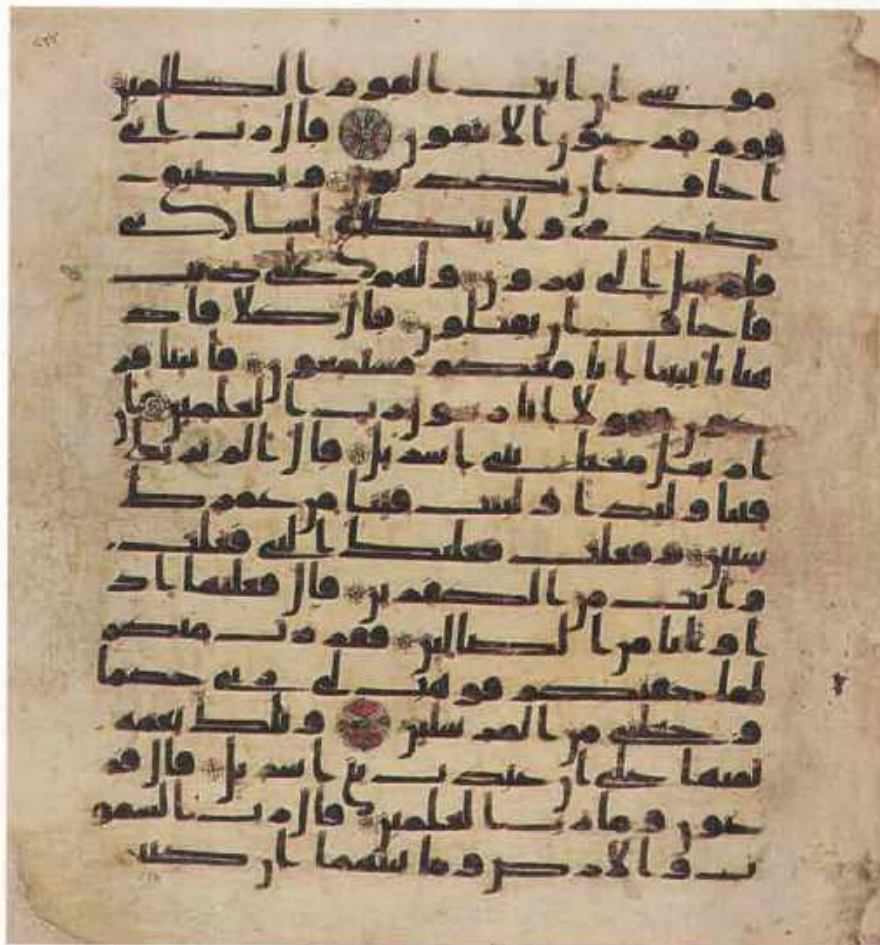 موسى ان ايت القوم الظلمين
قوم فرعون الا يتقون قال رب اني
اخاف ان يكذبون ويضيق
صدري ولا ينطلق لساني
فارسل الى هرون ولهم على ذنب
فاخاف ان يقتلون قال كلا فاذ
هبا باييتنا انا معكم مستمعون فاتيا فر
عون فقولا انا رسول رب العلمين ان
ارسل معنا بني اسريل قال الم نربك
فينا وليدا ولبثت فينا من عمرك
سنين وفعلت فعلتك التي فعلت
وانت من الكفرين قال فعلتها اذ
ا وانا من الضالين ففررت منكم
لما خفتكم فوهب لي ربي حكما
وجعلني من المرسلين وتلك نعمة
تمنها علي ان عبدت بني اسريل قال فر
عون وما رب العلمين قال رب السمو
ت والارض وما بينهما ان كنتم